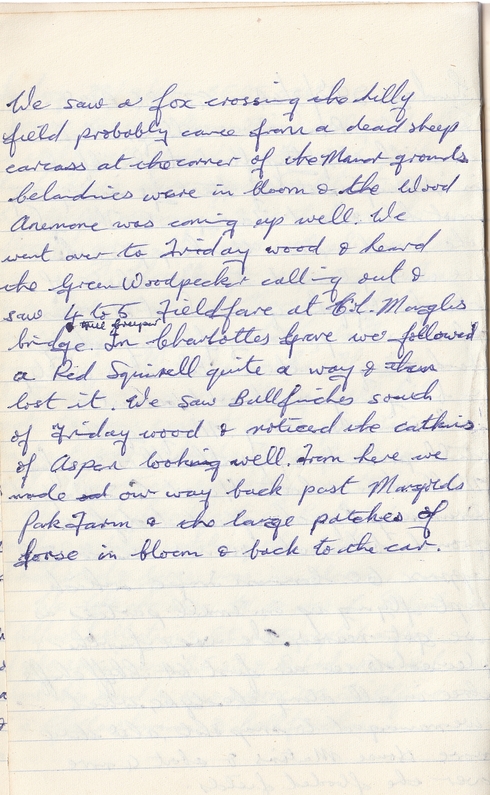 We saw a fox crossing the hilly
field probably came from a dead sheep
carcass at the corner of the Manor grounds.
were in bloom & the Wood
Anemone was coming up well. We
went over to Friday wood & heard
the Green Woodpecker calling out &
saw 4 to 5 Fieldfare at
bridge. In Charlottes Grove we followed
a Red Squirrell quite a way & then
lost it. We saw Bullfinches south
of Friday wood & noticed the catkins
of Aspen looking well. From here we
made our way back past
Park Farm & the large patches of
Gorse in bloom & back to the car.